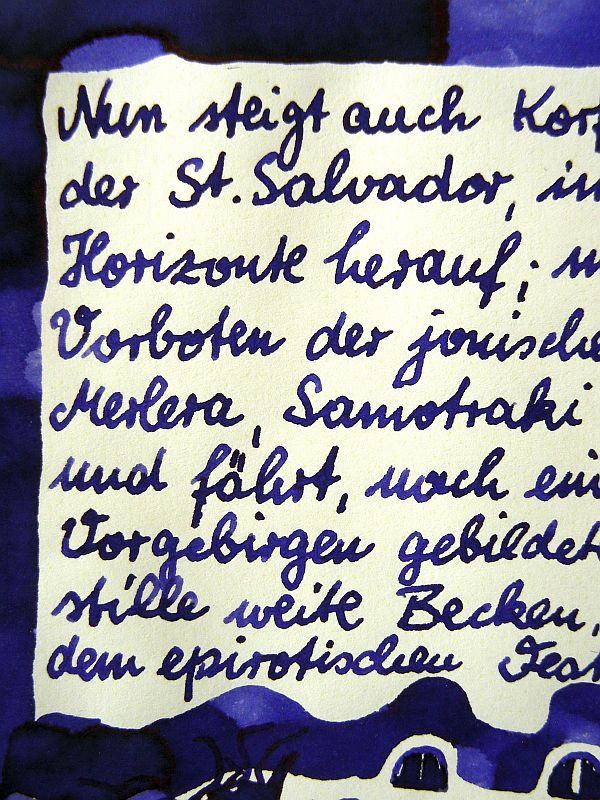 Nun steigt auch Korf
der St. Salvador, in
Horizonte herauf; m
Vorboten der jonische
Merlera, Samotraki
und fährt, nach ein
Vorgebirgen gebildet
stille weite Becken,
dem epirotischen Fest